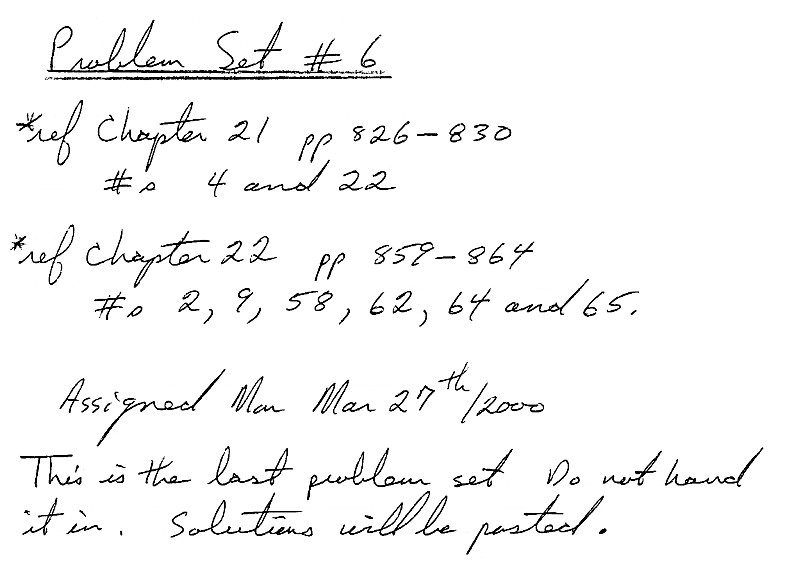 Problem Set # 6
*ref Chapter 21 pp 826-830
#s 4 and 22
*ref Chapter 22 pp 859-864
#s 2, 9, 58, 62, 64 and 65.
Assigned Mon Mar 27th/2000
This is the last problem set Do not hand
it in. Solutions will be posted.